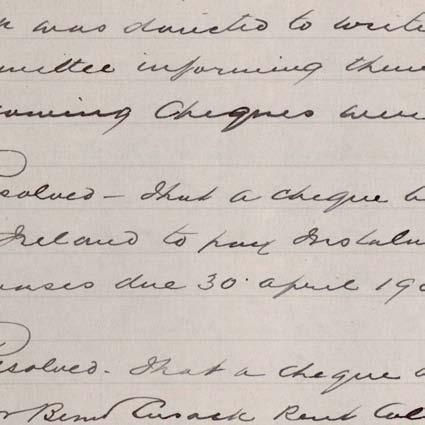 was directed to write
mittee informing them
owing Cheques were
Resolved - That a cheque b
Ireland to pay Instalm
nses due 30 April 19
Resolved - That a cheque
Cusack Rent Col